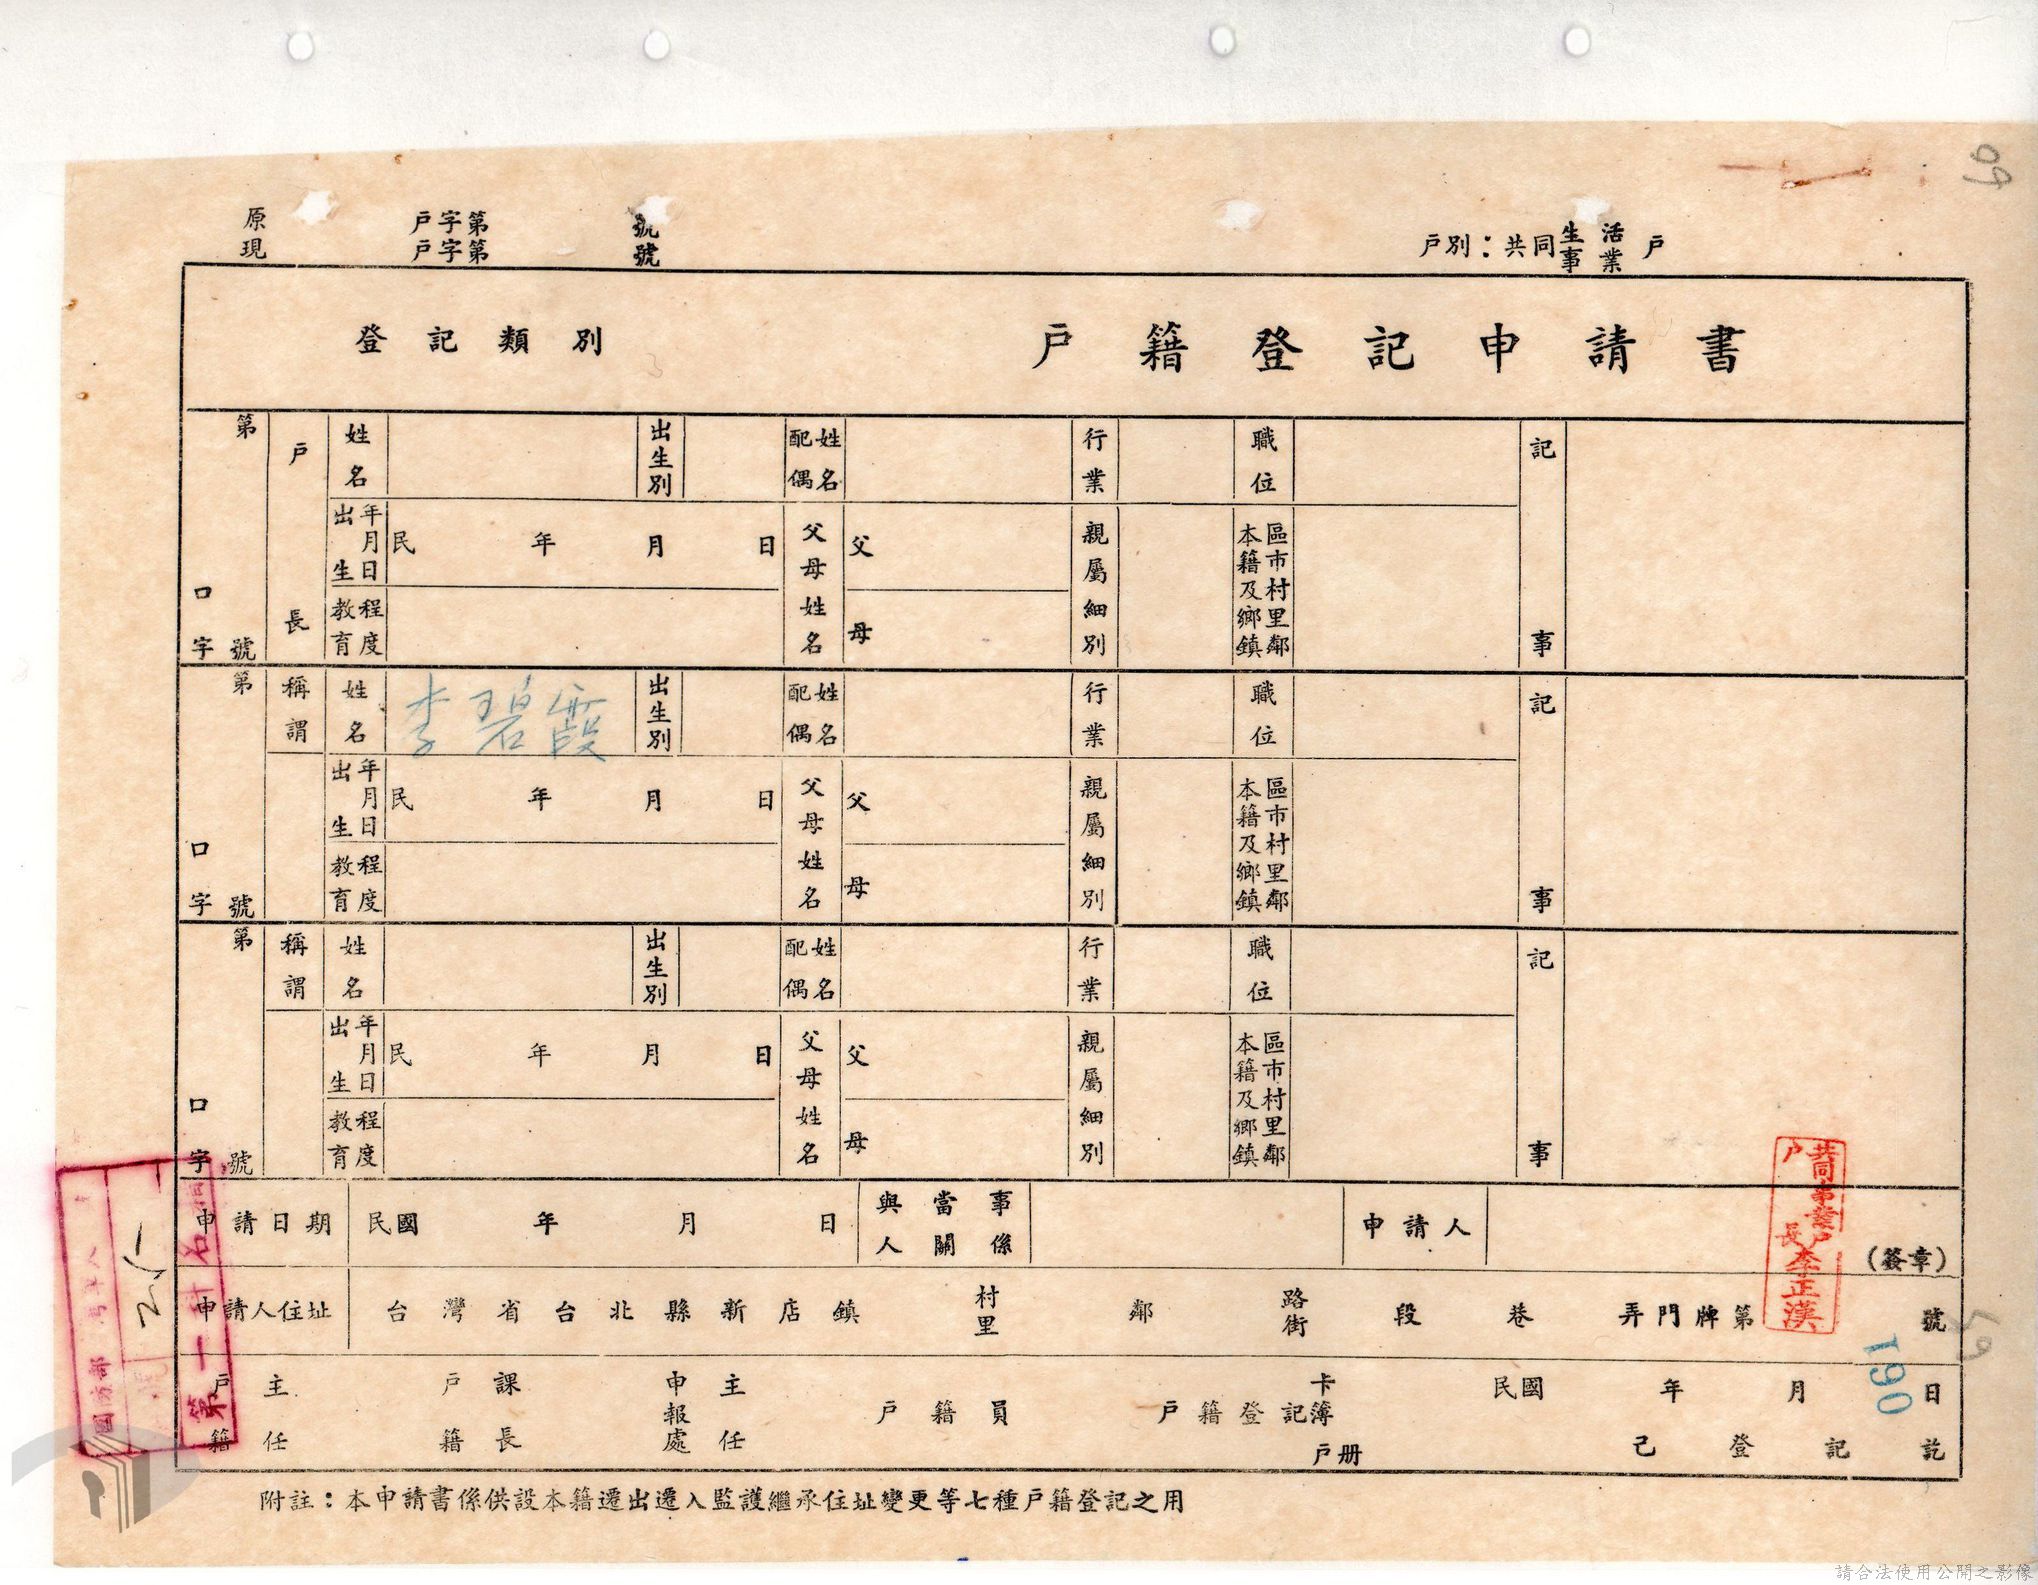 99
原 戶字第 號
現 戶字第 號
戶別：共同生活事業 戶
登記類別
戶籍登記申請書
第 口字 號
戶長
姓名
出生別
配偶姓名
行業
職位
記事
出生年月日 民 年 月 日
父母姓名 父 母
親屬細別
本籍及鄉鎮區市村里鄰
教育程度
第 口字 號
稱謂
姓名 李碧霞
出生別
配偶姓名
行業
職位
記事
出生年月日 民 年 月 日
父母姓名 父 母
親屬細別
本籍及鄉鎮區市村里鄰
教育程度
第 口字 號
稱謂
姓名
出生別
配偶姓名
行業
職位
記事
出生年月日 民 年 月 日
父母姓名 父 母
親屬細別
本籍及鄉鎮區市村里鄰
教育程度
申請日期 民國 年 月 日 與當事人關係 申請人 (簽章)
共同事業戶
戶長李正漢
申請人住址 台灣省台北縣新店鎮 村里 鄰 路街 段 巷 弄門牌第 號
戶籍主任 戶籍課長 申報處主任 戶籍員 戶籍登記卡簿 戶冊 民國 年 月 日 已登記訖
190
國防部
第一
附註：本申請書係供設本籍遷出遷入監護繼承住址變更等七種戶籍登記之用
請合法使用公開之影像